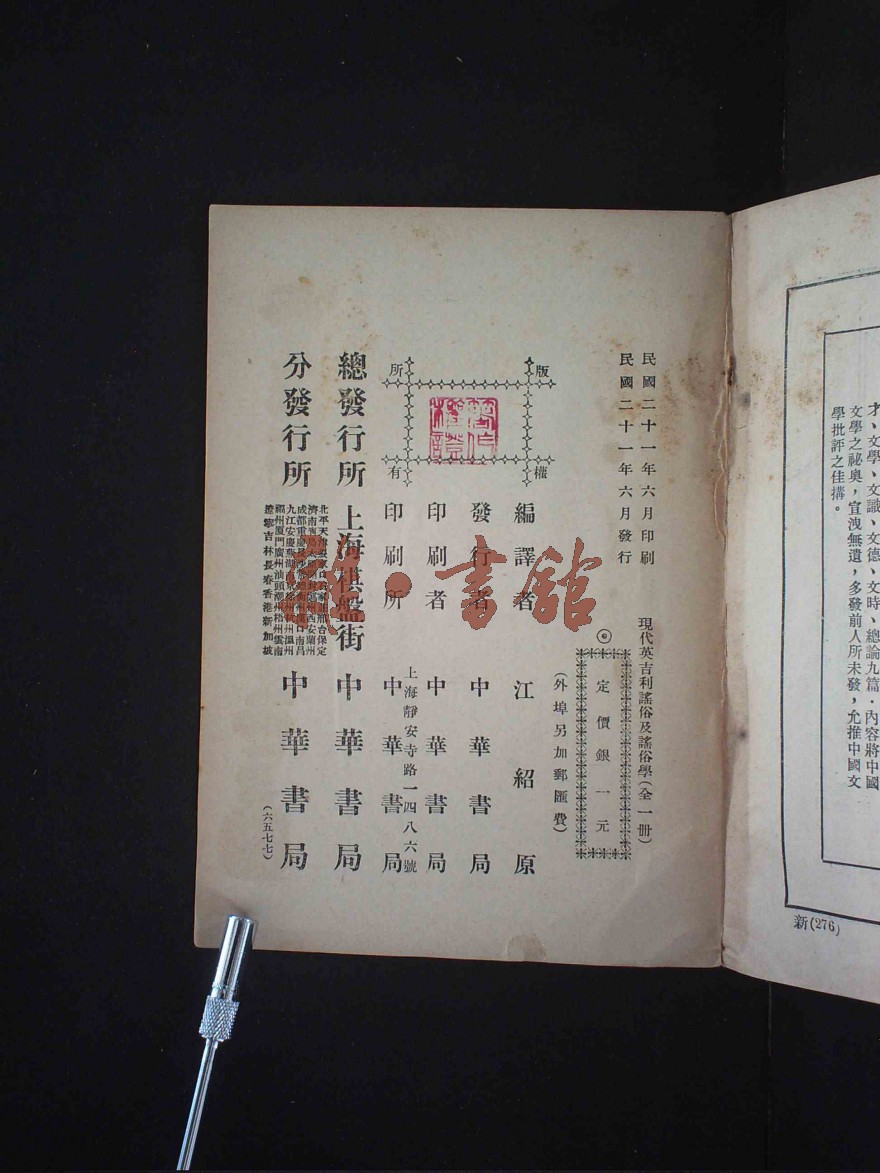 才、文學、文識、文德、文時、總論九篇．內容將中國
文學之祕奧，宣洩無遺，多發前人所未發，允推中國文
學批評之佳搆。
新(276)
民國二十一年六月印刷
民國二十一年六月發行
現代英吉利謠俗及謠俗學(全一冊)
定價銀一元
(外埠另加郵匯費)
版權所有
編譯者 江紹原
發行者 中華書局
印刷者 中華書局
上海靜安寺路一四八六號
印刷所 中華書局
總發行所 上海棋盤街 中華書局
分發行所 中華書局
北平天津 保定
濟南 西安蘭州
成都重慶 漢口南昌
九江安慶蕪湖 杭州溫州
福州廈門廣州汕頭潮州梧州雲南
遼寧吉林長春香港新加坡
(六五七七)
雅·書館